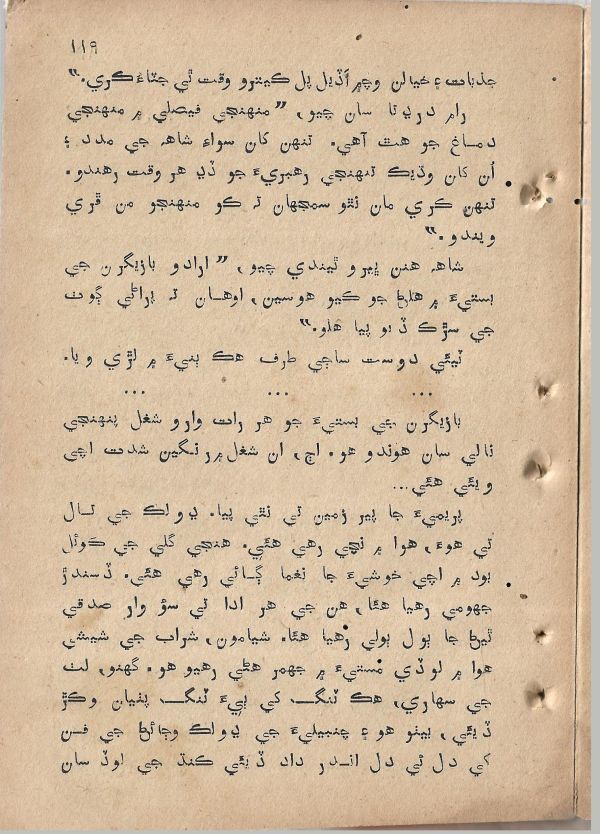 ١١٩
جذبات ۽ خيالن وچ ۾ اَڏيل پل ڪيترو وقت ٿي جٽاءُ ڪري.“
رام درڍتا سان چيو، ”منهنجي فيصلي ۾ منهنجي
دماغ جو هٿ آهي. تنهن کان سواءِ شاهہ جي مدد ۽
اُن کان وڌيڪ تنهنجي رهبريءَ جو ڏڍ هر وقت رهندو.
تنهن ڪري مان نٿو سمجهان تہ ڪو منهنجو من ڦري
ويندو.“
شاهہ هنن ڀيرو ٿيندي چيو، ”ارادو بازيگرن جي
بستيءَ ۾ هلڻ جو ڪيو هوسين، اوهان تہ پراڻي ڳوٺ
جي سڙڪ ڏيو پيا هلو.“
ٽيئي دوست ساڄي طرف هڪ ٻنيءَ ۾ لڙي ويا.
... ... ...
بازيگرن جي بستيءَ جو هر رات وارو شغل پنهنجي
نالي سان هوندو هو. اڄ، ان شغل ۾ رنگين شدت اچي
ويئي هئي...
پريميءَ جا پير زمين تي نٿي پيا. ڍولڪ جي تال
تي هوءَ، هوا ۾ نچي رهي هئي. هنجي گلي جي ڪوئل
ٻود ۾ اچي خوشيءَ جا نغما ڳائي رهي هئي. ڏسندڙ
جهومي رهيا هئا، هن جي هر ادا تي سؤ وار صدقي
ٿيڻ جا ٻول ٻولي رهيا هئا. شيامون، شراب جي شيشي
هوا ۾ لوڏي مستيءَ ۾ جهمر هڻي رهيو هو. گهنو، لٺ
جي سهاري، هڪ ٽنگ کي ٻيءَ ٽنگ پٺيان وڪڙ
ڏيئي، بيٺو هو ۽ چنبيليءَ جي ڍولڪ وڄائڻ جي فن
کي دل ئي دل اندر داد ڏيئي ڪنڌ جي لوڏ سان